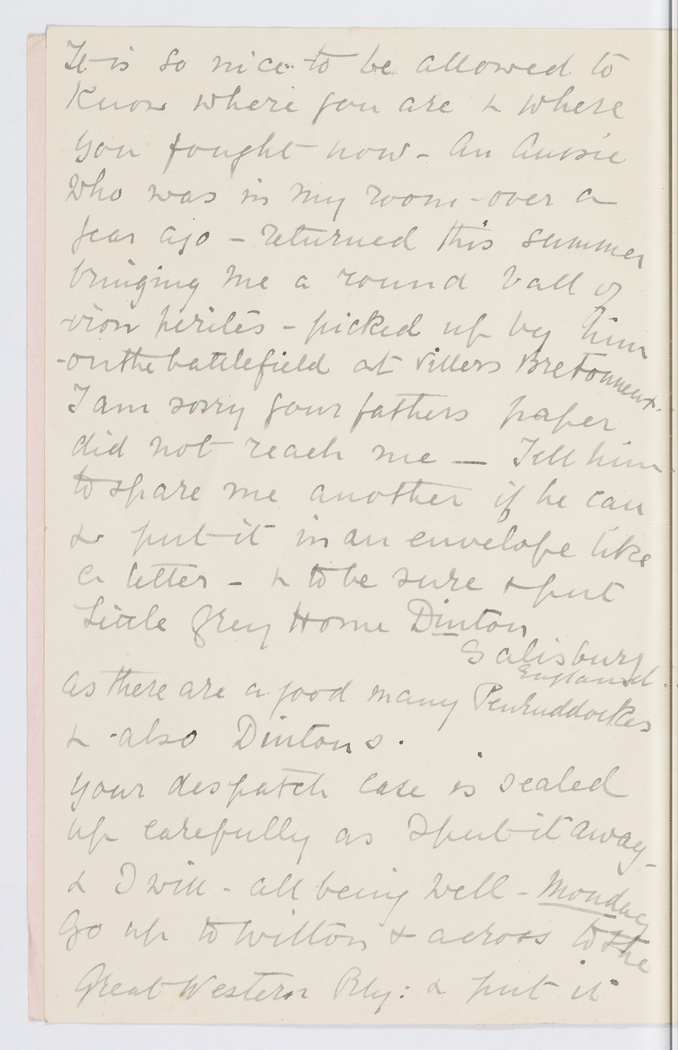 It is so nice to be allowed to
know where you are & where
you fought now - An Aussie
who was in my room - over a
year ago - returned this summer
bringing me a round ball of
iron perites - picked up by him
- on the battlefield at Villers Bretonneux.
I am sorry your fathers paper
did not reach me — Tell him
to spare me another if he can
& put it in an envelope like
a letter - & to be sure & put
Little Grey Home Dinton
Salisbury
England.
as there are a good many Penruddockes
& also Dintons.
your despatch case is sealed
up carefully as I put it away -
& I will - all being well - Monday
go up to Wilton & across to the
Great Western Rly: & put it